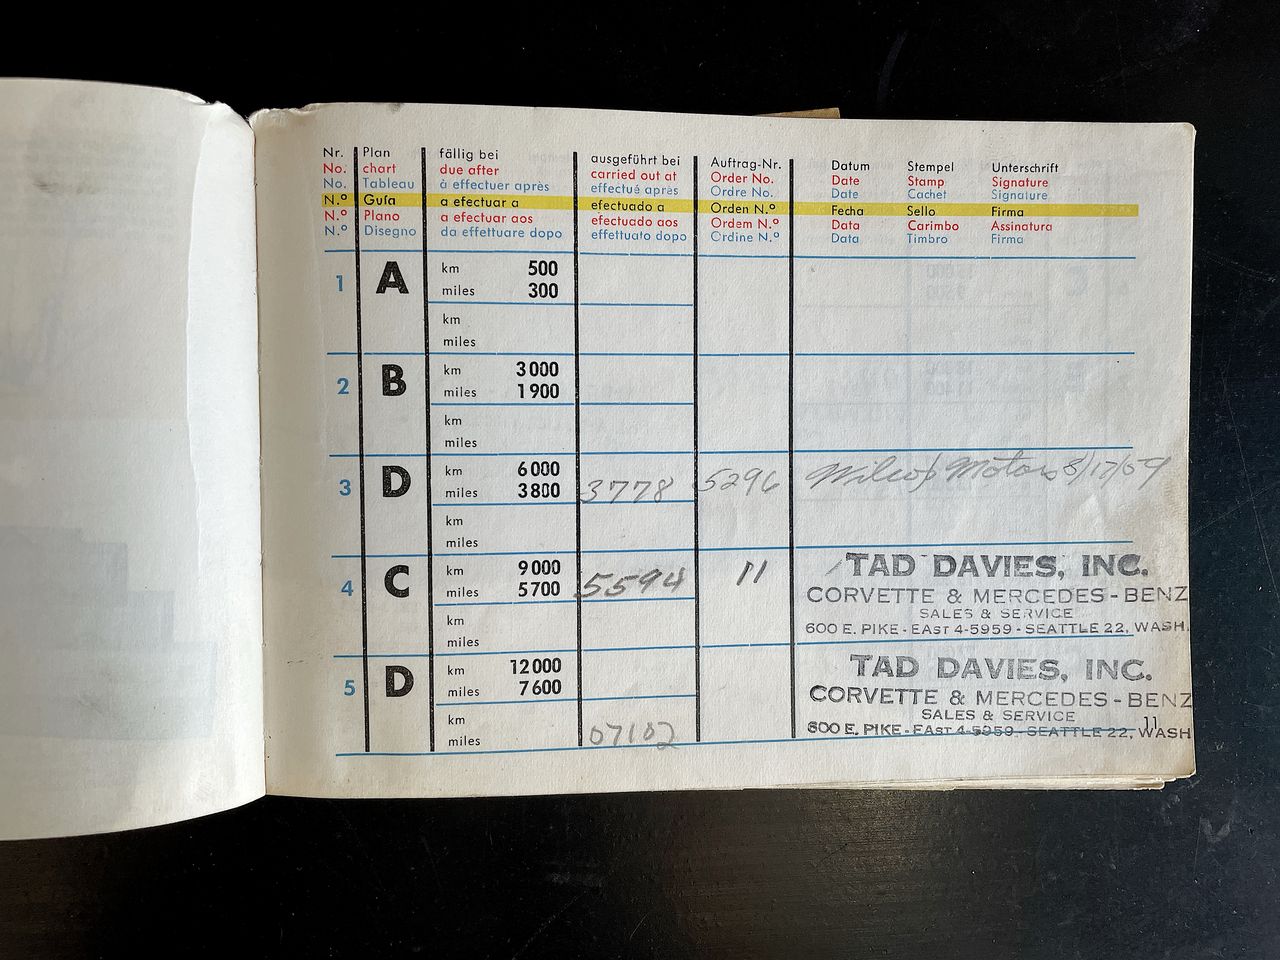 Nr. Plan fällig bei ausgeführt bei Auftrag-Nr. Datum Stempel Unterschrift
No. chart due after carried out at Order No. Date Stamp Signature
No. Tableau à effectuer après effectué après Ordre No. Date Cachet Signature
N.º Guía a efectuar a efectuado a Orden N.º Fecha Sello Firma
N.º Plano a efectuar aos efectuado aos Ordem N.º Data Carimbo Assinatura
N.º Disegno da effettuare dopo effettuato dopo Ordine N.º Data Timbro Firma
1 A km 500
miles 300
km
miles
2 B km 3000
miles 1900
km
miles
3 D km 6000
miles 3800 3778 5296 Motors
km
miles
4 C km 9000
miles 5700 5594 11
km
miles
TAD DAVIES, INC.
CORVETTE & MERCEDES-BENZ
SALES & SERVICE
600 E. PIKE - EAST 4-5959 - SEATTLE 22, WASH.
5 D km 12000
miles 7600
km
miles 07102
TAD DAVIES, INC.
CORVETTE & MERCEDES-BENZ
SALES & SERVICE 11
600 E. PIKE - EAST 4-5959 - SEATTLE 22, WASH